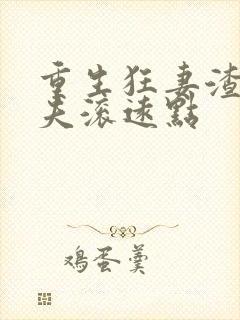 重生狂妻渣
夫滚遠點
鸡蛋羹